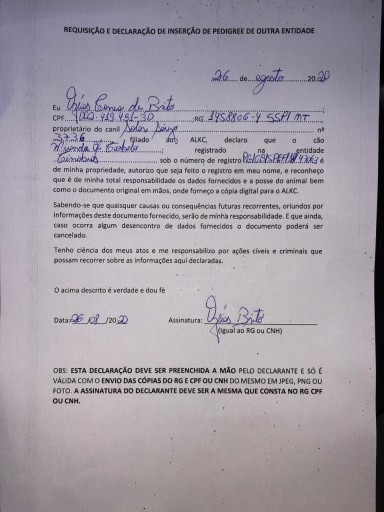 REQUISIÇÃO E DECLARAÇÃO DE INSERÇÃO DE PEDIGREE DE OUTRA ENTIDADE
26 de agosto 2020
Eu de Brito
CPF RG SSP/MT
proprietário do canil nº
3736 filiado do ALKC, declaro que o cão
registrado na entidade
sob o número de registro é
de minha propriedade, autorizo que seja feito o registro em meu nome, e reconheço
que é de minha total responsabilidade os dados fornecidos e a posse do animal bem
como o documento original em mãos, onde forneço a cópia digital para o ALKC.
Sabendo-se que quaisquer causas ou consequências futuras recorrentes, oriundos por
informações deste documento fornecido, serão de minha responsabilidade. E que ainda,
caso ocorra algum desencontro de dados fornecidos o documento poderá ser
cancelado.
Tenho ciência dos meus atos e me responsabilizo por ações cíveis e criminais que
possam recorrer sobre as informações aqui declaradas.
O acima descrito é verdade e dou fé
Data: 26 /08 /2020 Assinatura: Brito
(Igual ao RG ou CNH)
OBS: ESTA DECLARAÇÃO DEVE SER PREENCHIDA A MÃO PELO DECLARANTE E SÓ É
VÁLIDA COM O ENVIO DAS CÓPIAS DO RG E CPF OU CNH DO MESMO EM JPEG, PNG OU
FOTO. A ASSINATURA DO DECLARANTE DEVE SER A MESMA QUE CONSTA NO RG CPF
OU CNH.